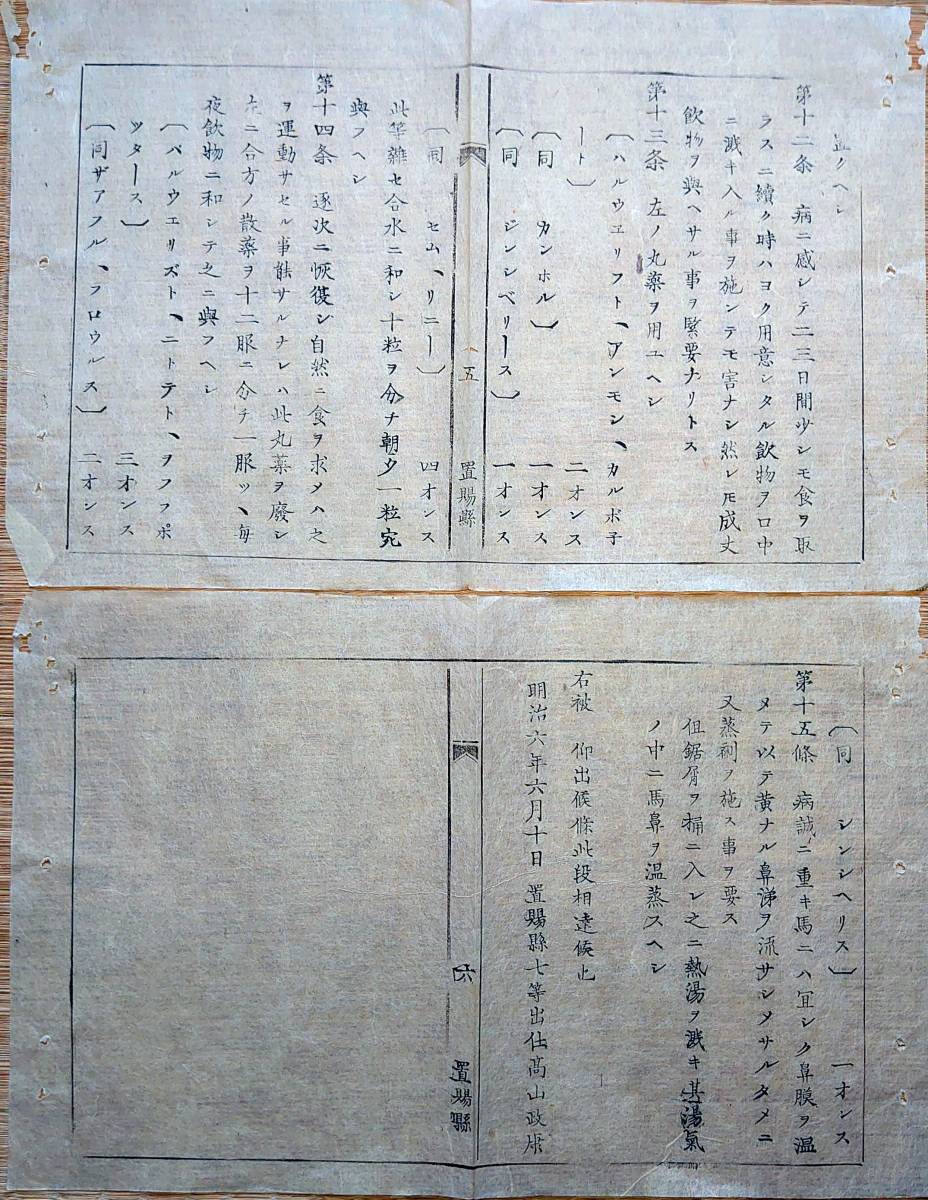 並ノヘシ
第十二条 病ニ感シテ二三日間少シモ食ヲ取
ラスニ續ク時ハヨク用意シタル飲物ヲ口中
ニ溅キ入ル事ヲ施シテモ害ナシ然レ𪜈成丈
飲物ヲ與ヘサル事ヲ緊要ナリトス
第十三条 左ノ丸薬ヲ用ユヘシ
〔ハルウヱリフト、アンモン、カルボ子
ート〕 二オンス
〔同 カンホル〕 一オンス
〔同 ジンシベリース〕 一オンス
五 置賜縣
〔同 セム、リニー〕 四オンス
此筆雜セ合水ニ和シ十粒ヲ分ナ朝夕一粒宛
與フヘシ
第十四条 逐次ニ恢復シ自然ニ食ヲ求メハ之
ヲ運動サセル事能サルナレハ此丸薬ヲ廢シ
左ニ合方ノ散薬ヲ十二服ニ分チ一服ツヽ毎
夜飲物ニ和シテ之ニ與フヘシ
〔パルウエリズト、ニトテト、ヲフフポ
ツタース〕 三オンス
〔同ザアフル、フロウルス〕 二オンス
〔同 シンシヘリス〕 一オンス
第十五條 病誠ニ重キ馬ニハ冝シク鼻膜ヲ温
メテ以テ黄ナル鼻涕ヲ流サシメサルタメニ
又蒸剤ヲ施ス事ヲ要ス
但鋸屑ヲ桶ニ入レ之ニ熱湯ヲ溅キ其湯氣
ノ中ニ馬鼻ヲ温蒸スヘシ
右被 仰出候條此段相達候也
明治六年六月十日 置賜縣七等出仕髙山政康
六 置賜縣